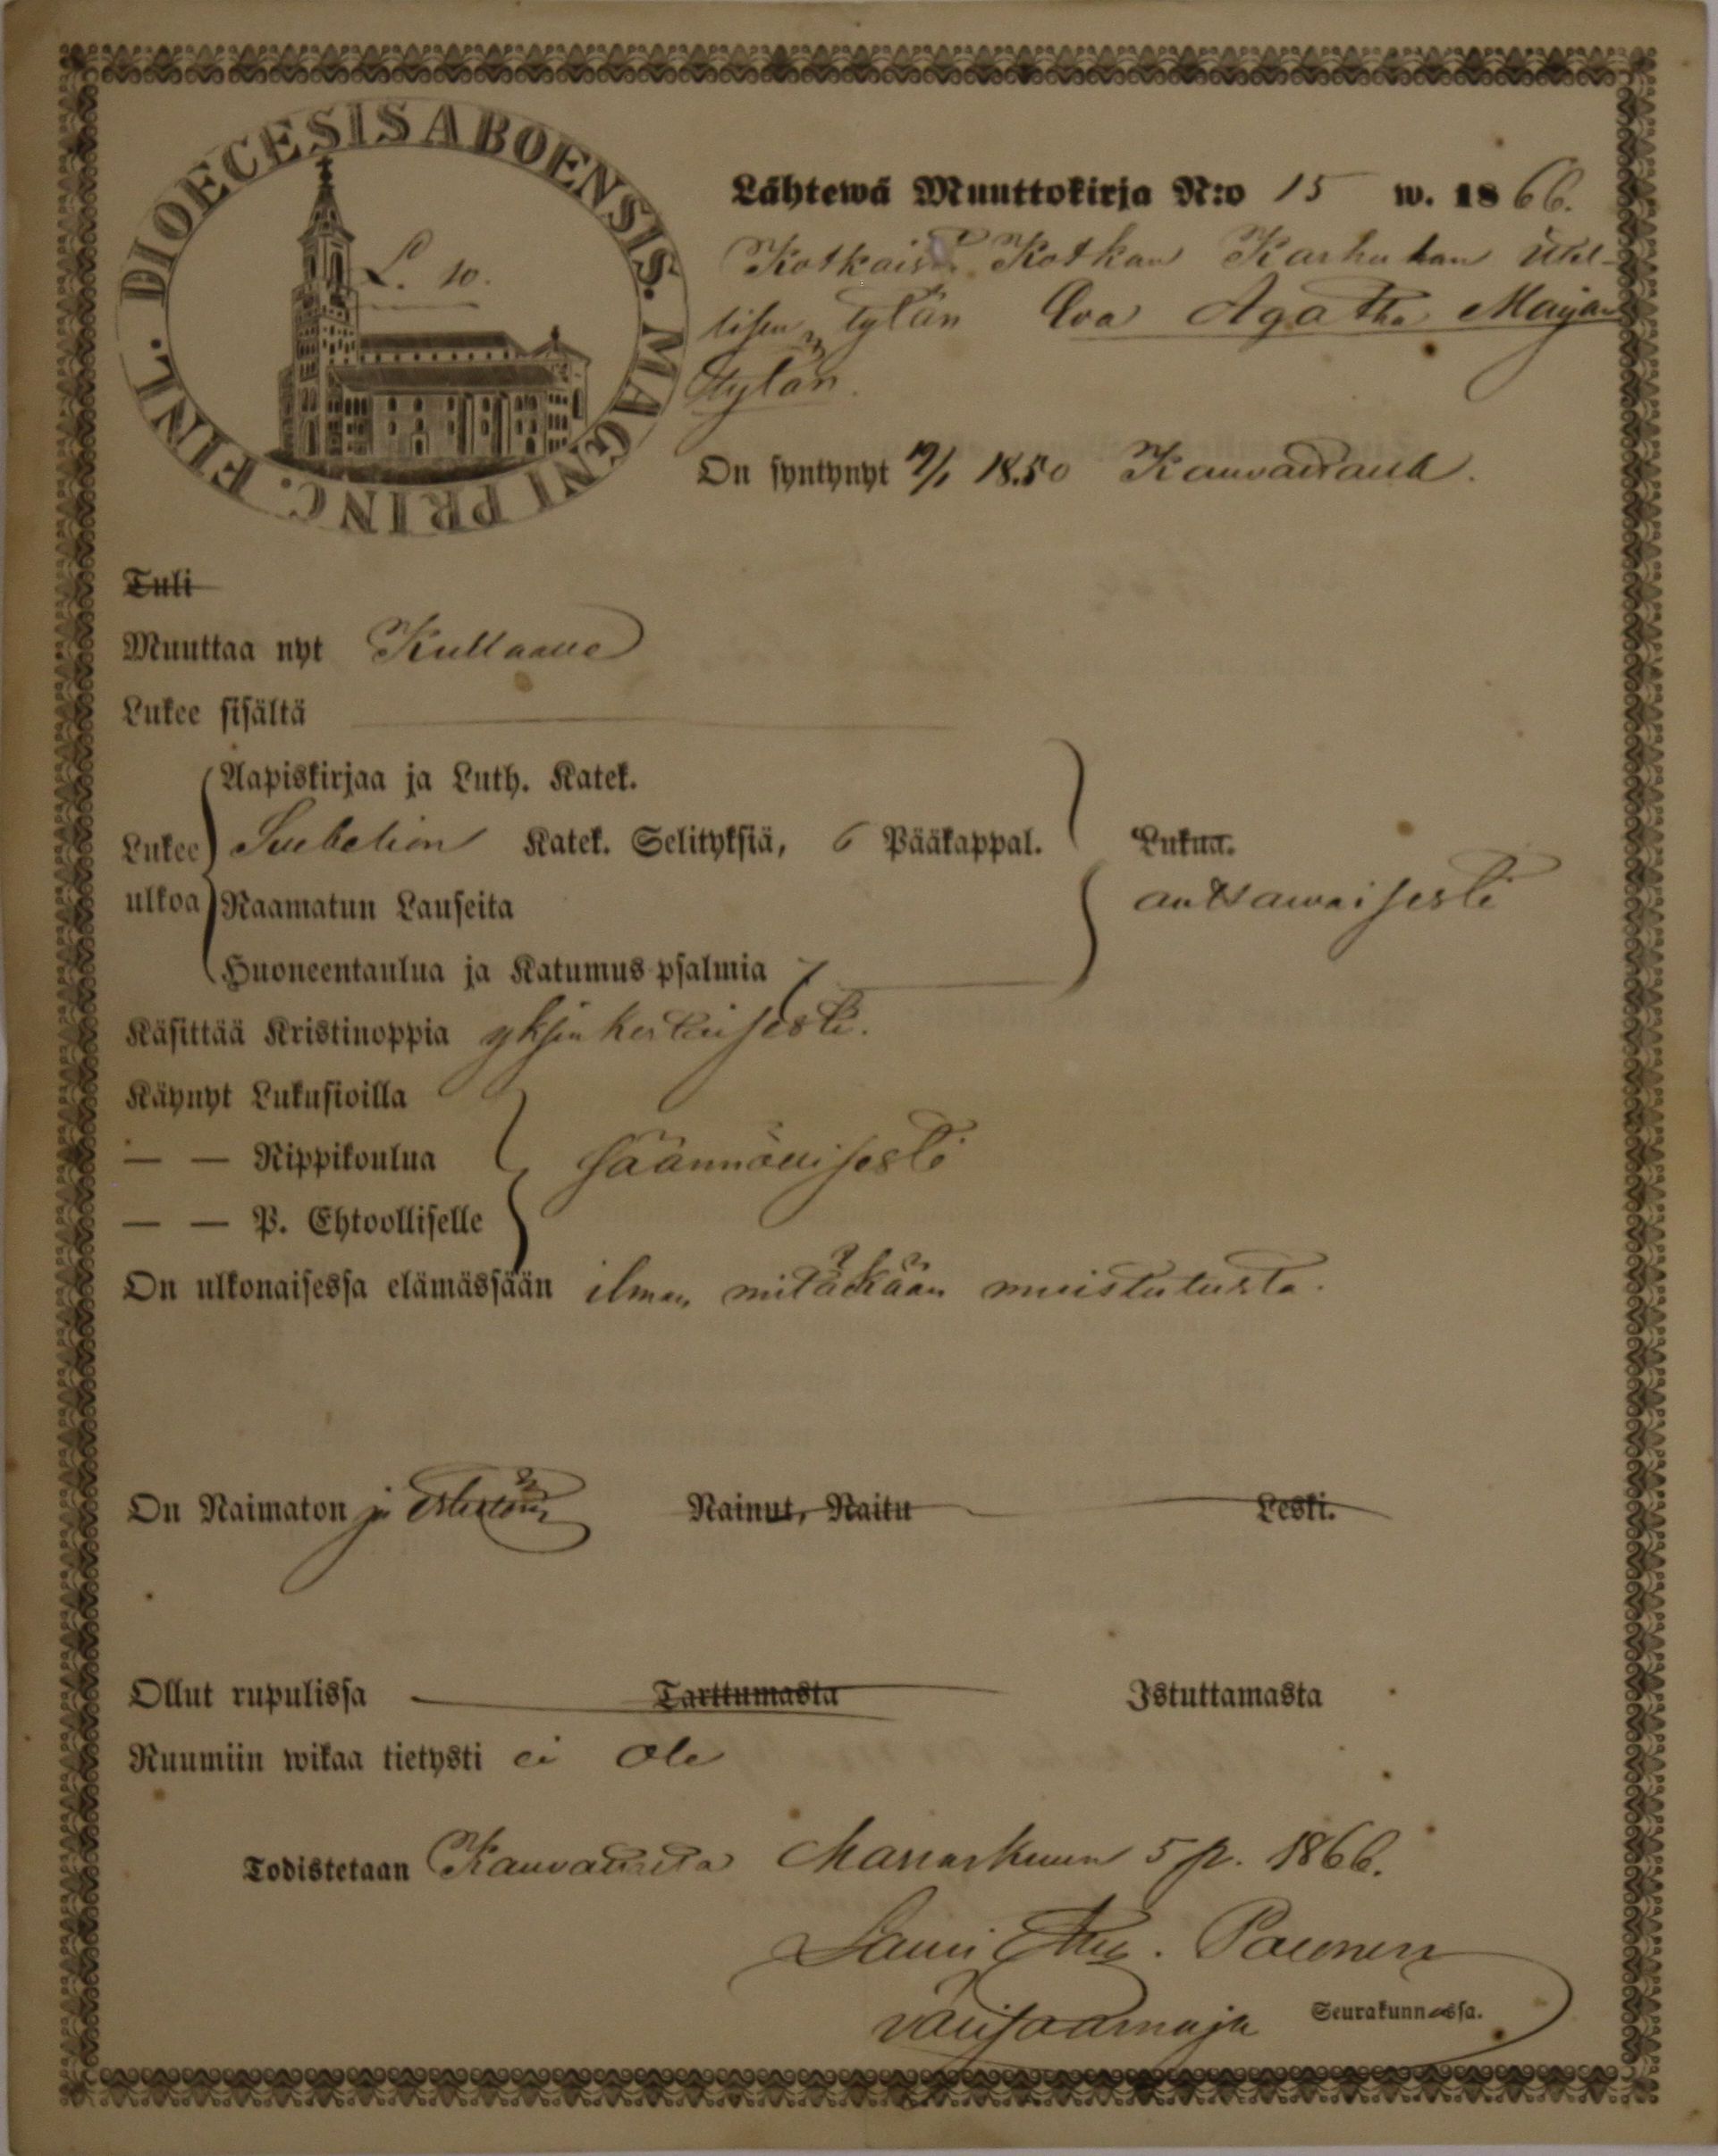 DIOECESIS ABOENSIS. MAGNI PRINC. FINL.
L. 10.
Lähtewä Muuttokirja N:o 15 w. 1866.
Kotkan Karhulan
tytän Eva Agatha Maijan
tytän.
On syntynyt 1850
Tuli
Muuttaa nyt Kullaalle
Lukee sisältä
Aapiskirjaa ja Luth. Katek.
Lukee ulkoa
Katek. Selityksiä, 6 Pääkappal.
Lukua.
Raamatun Lauseita
auttawaisesti
Huoneentaulua ja Katumus-psalmia 7
Käsittää Kristinoppia yksinkertaisesti.
Käynyt Lukusioilla
— — Rippikoulua
säännöllisesti
— — P. Ehtoolliselle
On ulkonaisessa elämässään ilman mitäkään muistutusta.
On Naimaton ja esteetöin
Nainut, Naitu
Leski.
Ollut rupulissa
Tarttumasta
Istuttamasta
Ruumiin wikaa tietysti ei ole
Todistetaan Kauvatsalla Marraskuun 5 p. 1866.
Lauri Paunen
Seurakunnassa.